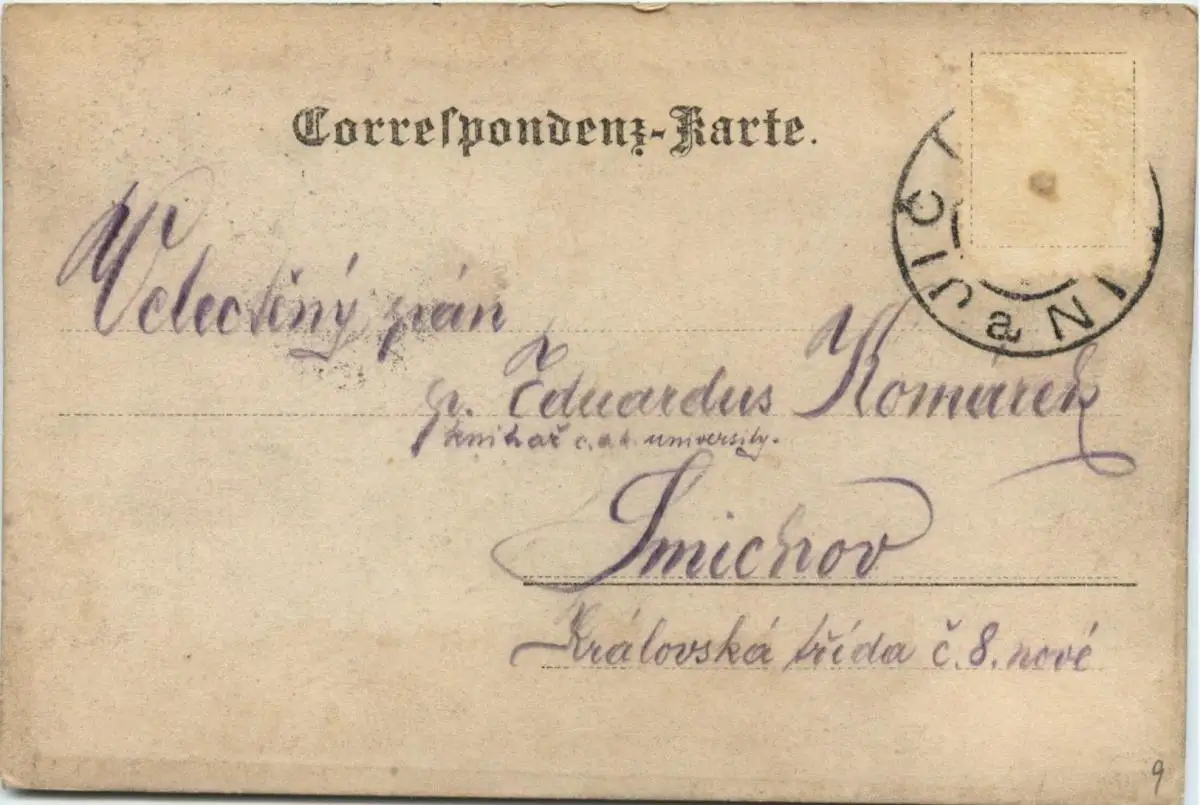 Correspondenz-Karte.
Velectěný pán
p. Eduardus Komárek
knihař c. a k. university.
Smichov
Královská třída č. 8. nové
JIC
a NI
9